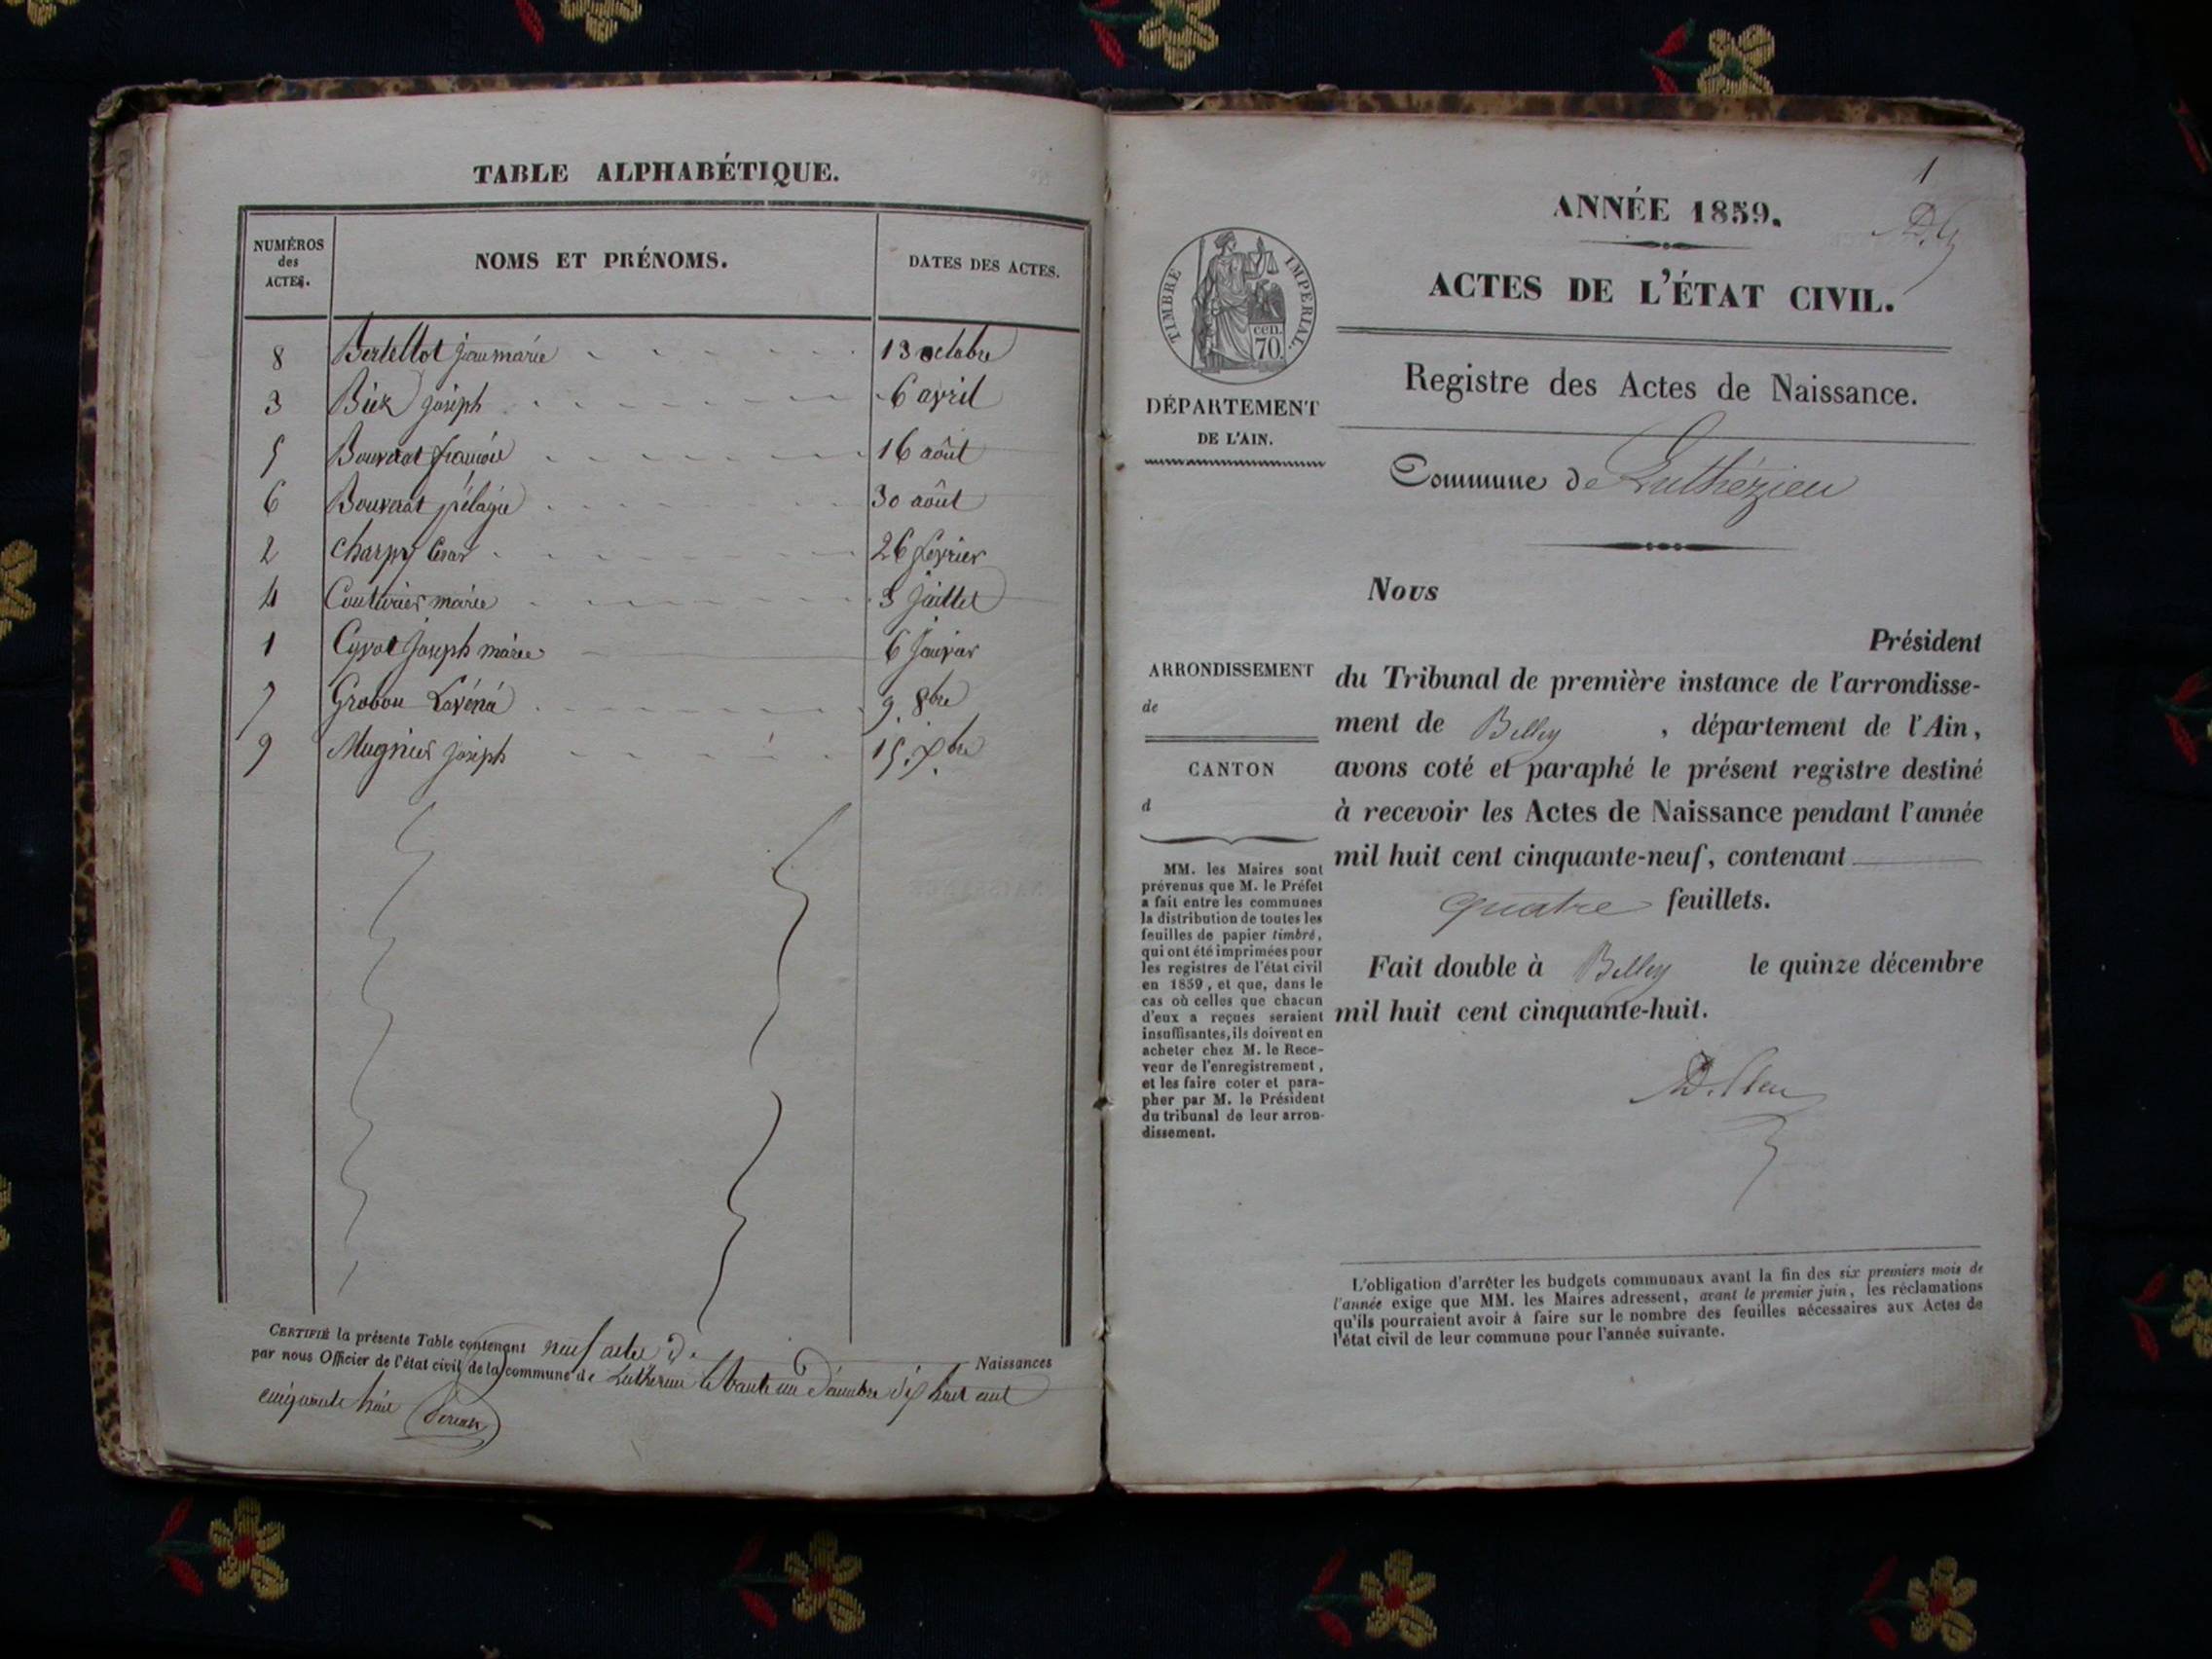 TABLE ALPHABÉTIQUE.
NUMÉROS des ACTES.
NOMS ET PRÉNOMS.
DATES DES ACTES.
8 Bertellot jean marie 13 octobre
3 joseph 6 avril
5 Bouvrat 16 août
6 Bouvrat pélagie 30 août
2 Charpy 26 février
4 Couturier marie 3 juillet
1 joseph marie 6 janvier
7 Grobon 9. 8bre
9 Mugnier joseph 15. Xbre
CERTIFIÉ la présente Table contenant neuf actes de Naissances
par nous Officier de l'état civil de la commune de le trente un décembre huit cent
cinquante huit
1
ANNÉE 1859.
ACTES DE L'ÉTAT CIVIL.
TIMBRE IMPERIAL.
cen.
70.
DÉPARTEMENT
DE L'AIN.
Registre des Actes de Naissance.
Commune de Luthézieu
Nous
Président
ARRONDISSEMENT
de
CANTON
d
du Tribunal de première instance de l'arrondisse-
ment de Belley , département de l'Ain,
avons coté et paraphé le présent registre destiné
à recevoir les Actes de Naissance pendant l'année
mil huit cent cinquante-neuf, contenant
quatre feuillets.
Fait double à Belley le quinze décembre
mil huit cent cinquante-huit.
MM. les Maires sont
prévenus que M. le Préfet
a fait entre les communes
la distribution de toutes les
feuilles de papier timbré,
qui ont été imprimées pour
les registres de l'état civil
en 1859, et que, dans le
cas où celles que chacun
d'eux a reçues seraient
insuffisantes, ils doivent en
acheter chez M. le Rece-
veur de l'enregistrement,
et les faire coter et para-
pher par M. le Président
du tribunal de leur arron-
dissement.
L'obligation d'arrêter les budgets communaux avant la fin des six premiers mois de
l'année exige que MM. les Maires adressent, avant le premier juin, les réclamations
qu'ils pourraient avoir à faire sur le nombre des feuilles nécessaires aux Actes de
l'état civil de leur commune pour l'année suivante.